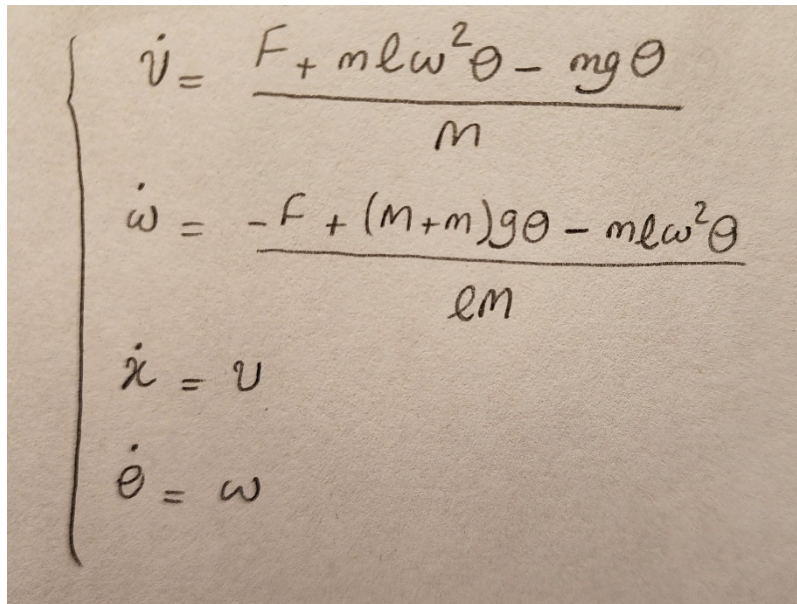 v̇ = (F + mlω²θ - mgθ) / M
ω̇ = (-F + (M+m)gθ - mlω²θ) / lM
ẋ = v
θ̇ = ω